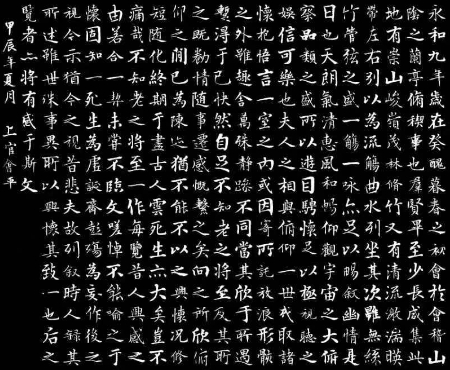 永和九年歲在癸醜暮春之初會於會稽山
陰之蘭亭脩禊事也群賢畢至少長咸集此
地有崇山峻嶺茂林脩竹又有清流激湍暎
帶左右引以為流觴曲水列坐其次雖無絲
竹管弦之盛一觴一詠亦足以暢叙幽情是
日也天朗氣清惠風和暢仰觀宇宙之大俯
察品類之盛所以遊目騁懷足以極視聽之
娛信可樂也夫人之相與俯仰一世或取諸
懷抱悟言一室之內或因寄所託放浪形骸
之外雖趣舍萬殊靜躁不同當其欣於所遇
暫得於己快然自足不知老之將至及其所
之既勌情隨事遷感慨繫之矣向之所欣俯
仰之間已為陳迹猶不能不以之興懷況脩
短隨化終期于盡古人云死生亦大矣豈不
痛哉不知老之將至一作每覽昔人興感之
由若合一契未嘗不臨文嗟悼不能喻之于
懷固知一死生為虛誕齊彭殤為妄作後之
視今亦猶今之視昔悲夫故列叙時人錄其
所述雖世殊事異所以興懷其致一也後之
覽者亦將有感于斯文
甲辰年夏月 上官會平